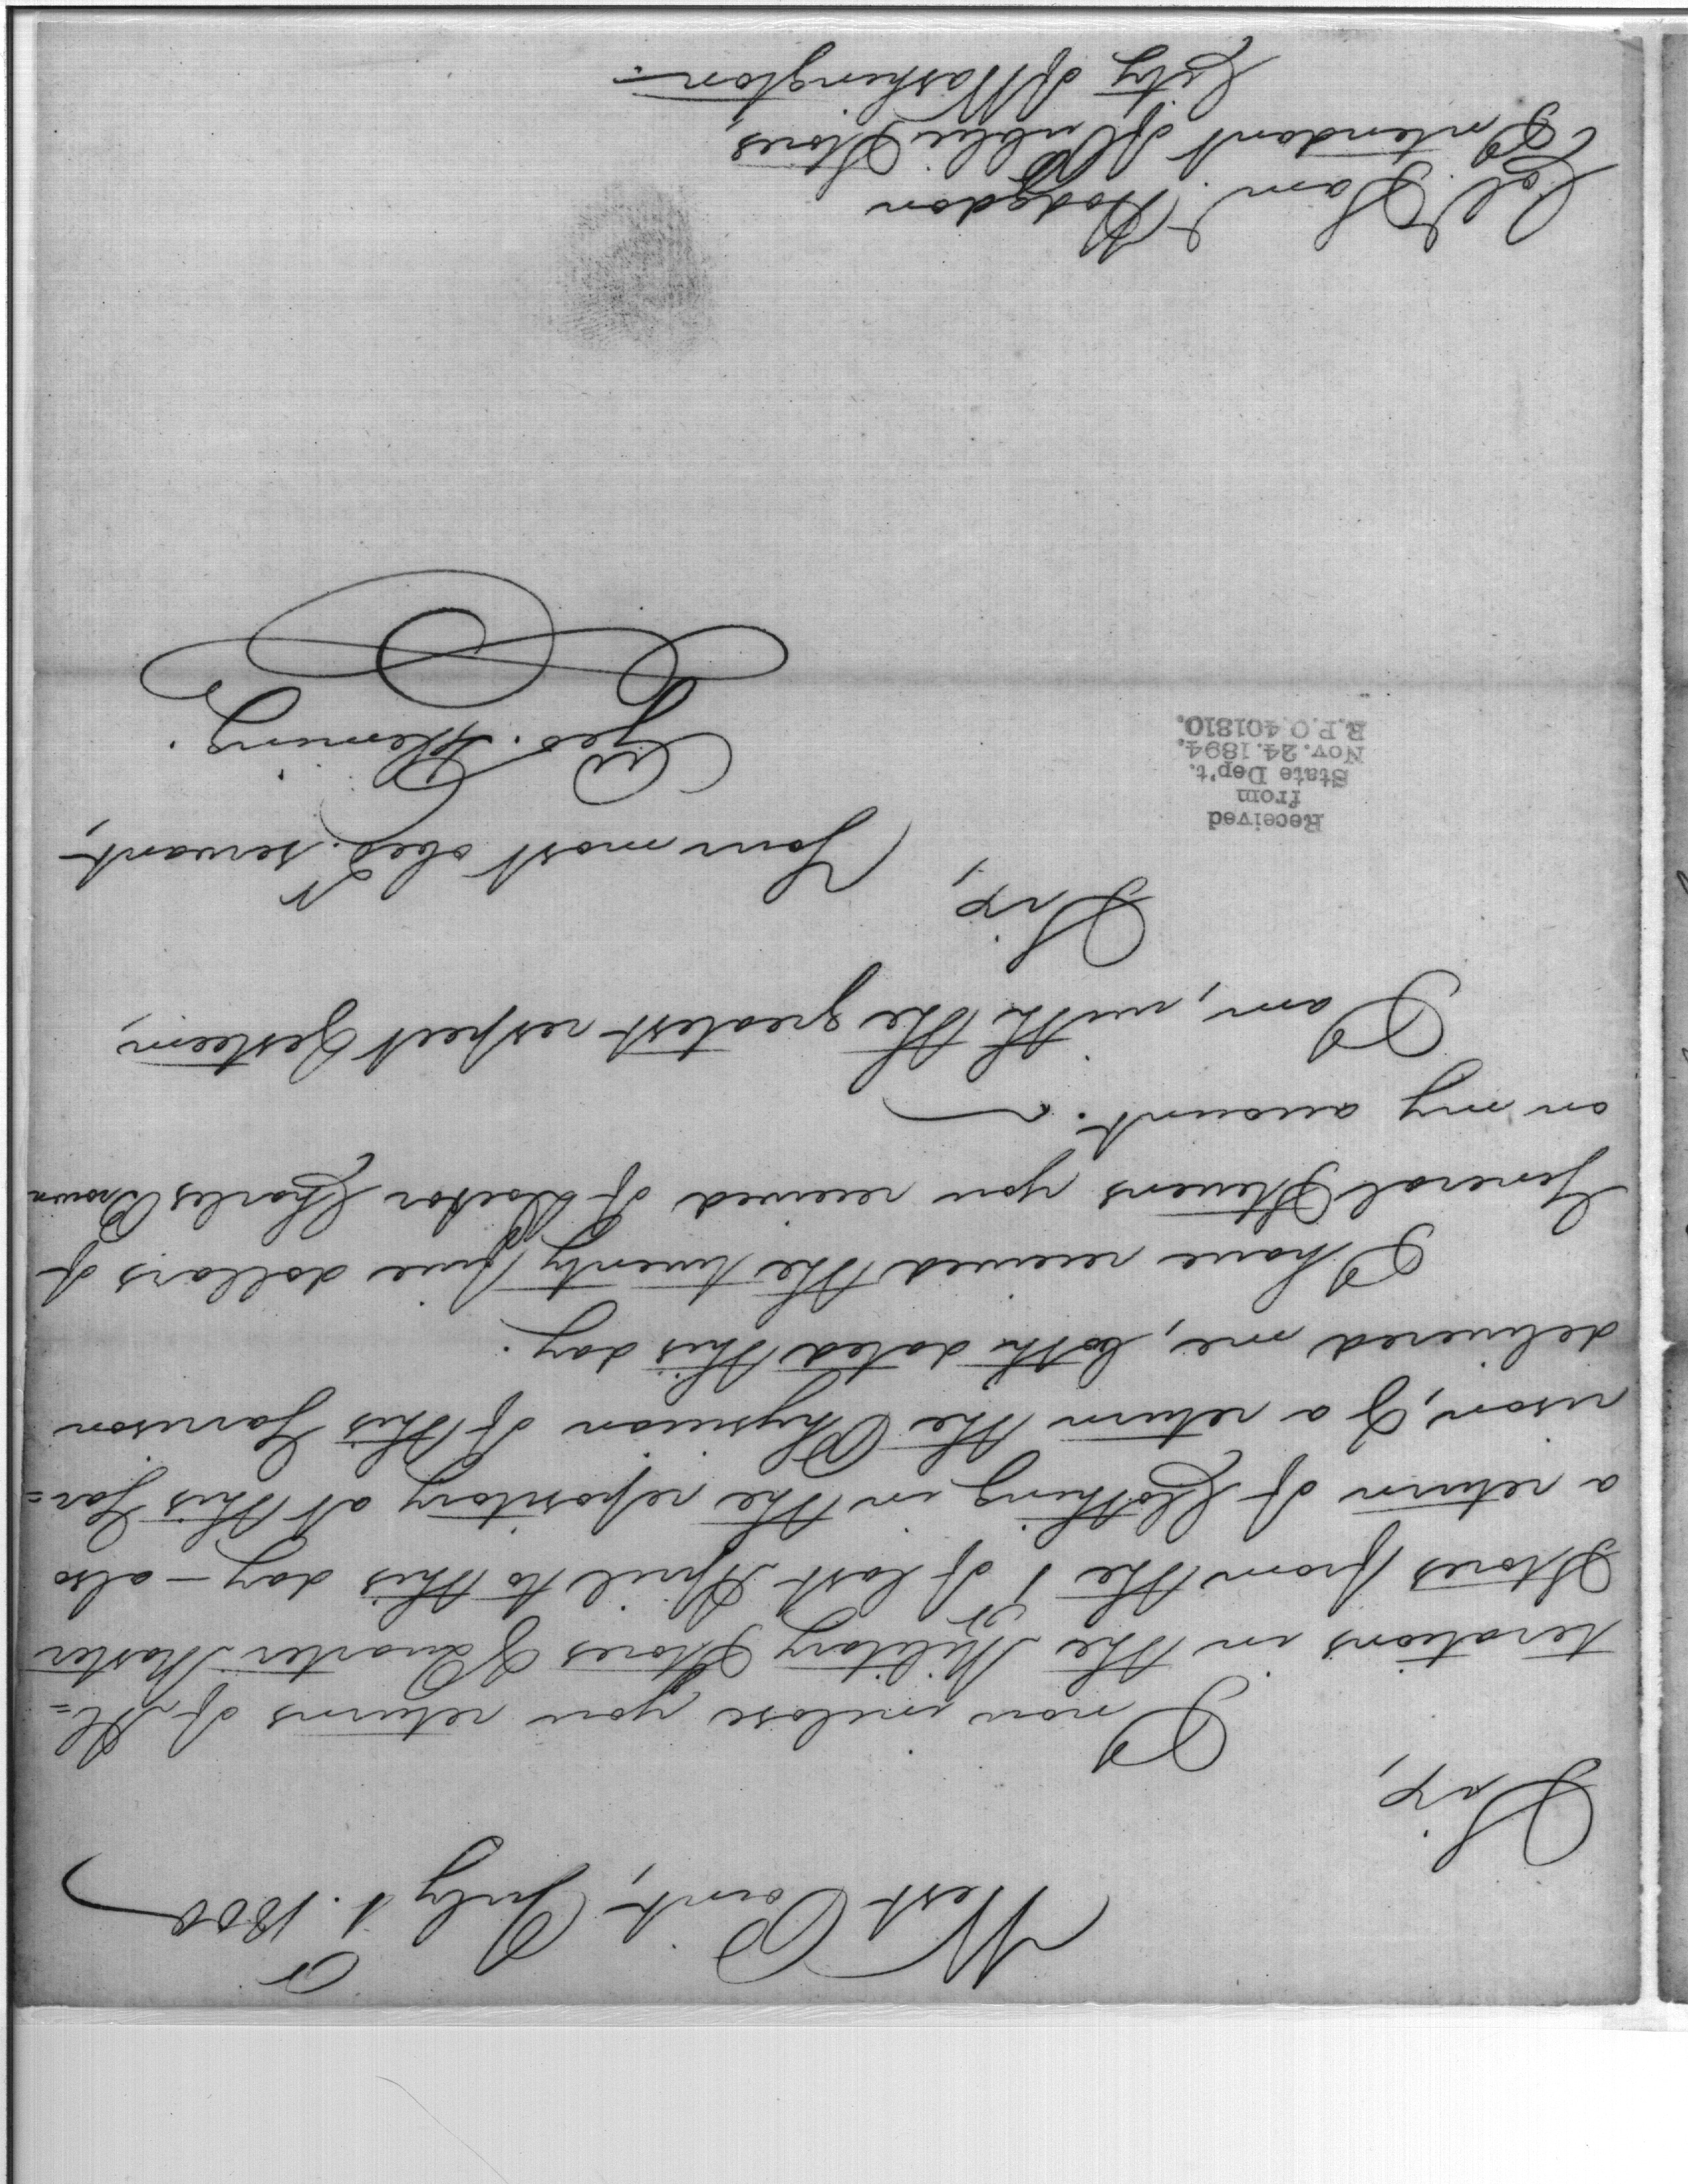 West Point, July 1st. 1800
Sir,
I now inclose you returns of Al=
terations in the Military Stores & Quarter Master
Stores from the 1st of last April to this day – also
a return of Clothing in the repository at this Gar=
rison, & a return the Physician of this Garrison
delivered me, both dated this day.
I have received the twenty five dollars of
General Stevens you received of Doctor Charles Brown
on my account.
I am, with the greatest respect & esteem,
Sir,
Your most obedt. servant,
Geo. Fleming.
Received
from
State Dep't.
Nov. 24. 1894.
R.P.O. 401810.
Col. Saml. Hodgdon
Intendant of Public Stores,
City of Washington.